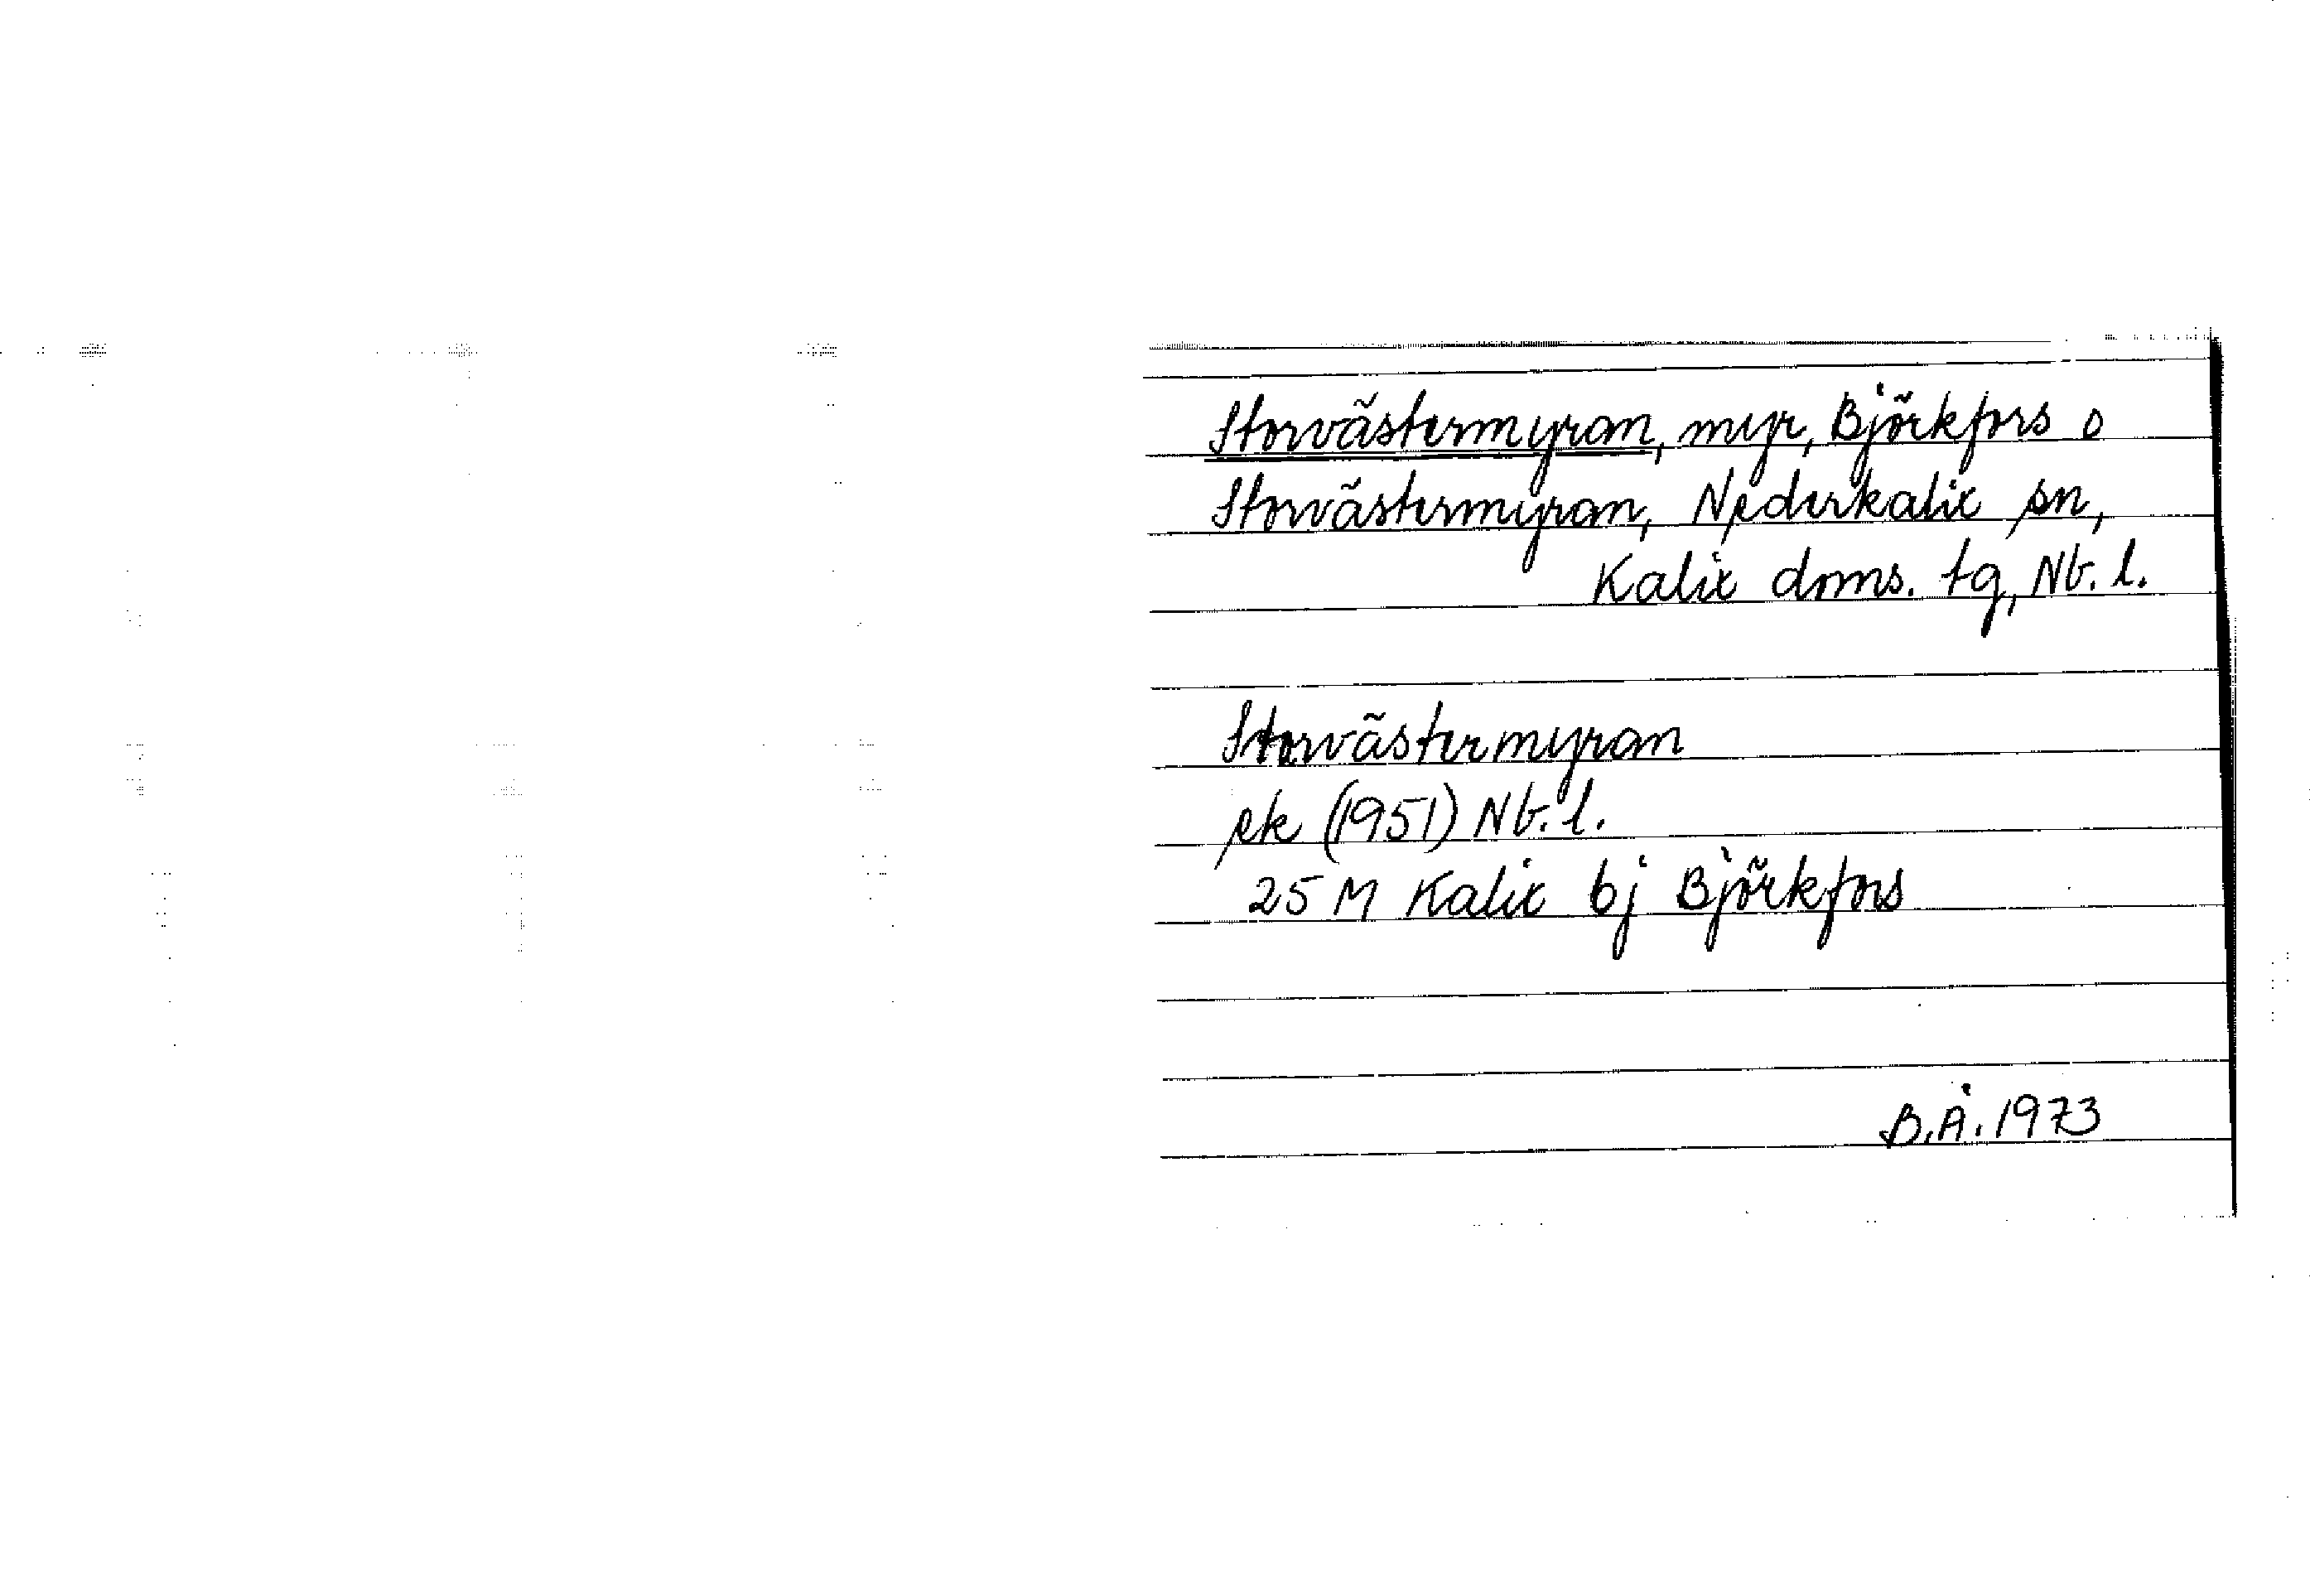 Storvästermyran, myr, Björkfors o
Storvästermyran, Nederkalix sn,
Kalix doms. tg, Nb. l.
Storvästermyran
ek (1951) Nb. l.
25 M Kalix bj Björkfors
B.Å. 1973